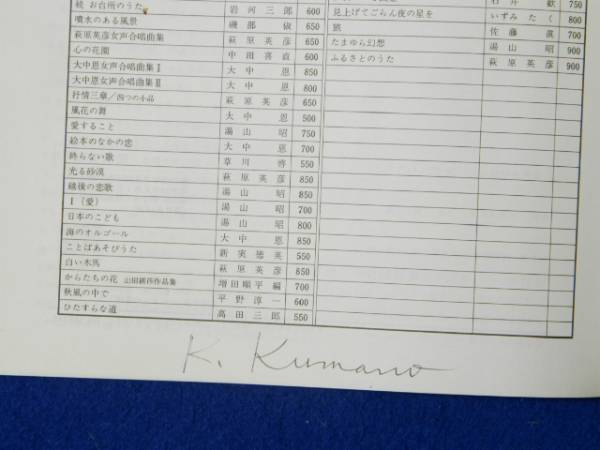 続 お台所のうた 岩河三郎 600
噴水のある風景 磯部俶 650
萩原英彦女声合唱曲集 萩原英彦 650
心の花園 中田喜直 600
大中恩女声合唱曲集Ⅰ 大中恩 850
大中恩女声合唱曲集Ⅱ 大中恩 800
抒情三章/四つの小品 萩原英彦 650
風花の舞 大中恩 500
愛すること 湯山昭 750
絵本のなかの恋 大中恩 700
終らない歌 草川啓 550
光る砂漠 萩原英彦 850
越後の恋歌 湯山昭 850
Ⅰ(愛) 湯山昭 700
日本のこども 湯山昭 800
海のオルゴール 大中恩 850
ことばあそびうた 新実徳英 550
白い木馬 萩原英彦 850
からたちの花 山田耕筰作品集 増田順平編 700
秋風の中で 平野淳一 600
ひたすらな道 高田三郎 550
石井歓 750
見上げてごらん夜の星を いずみたく 800
旅 佐藤眞 700
たまゆら幻想 湯山昭 900
ふるさとのうた 萩原英彦 900
K. Kumano